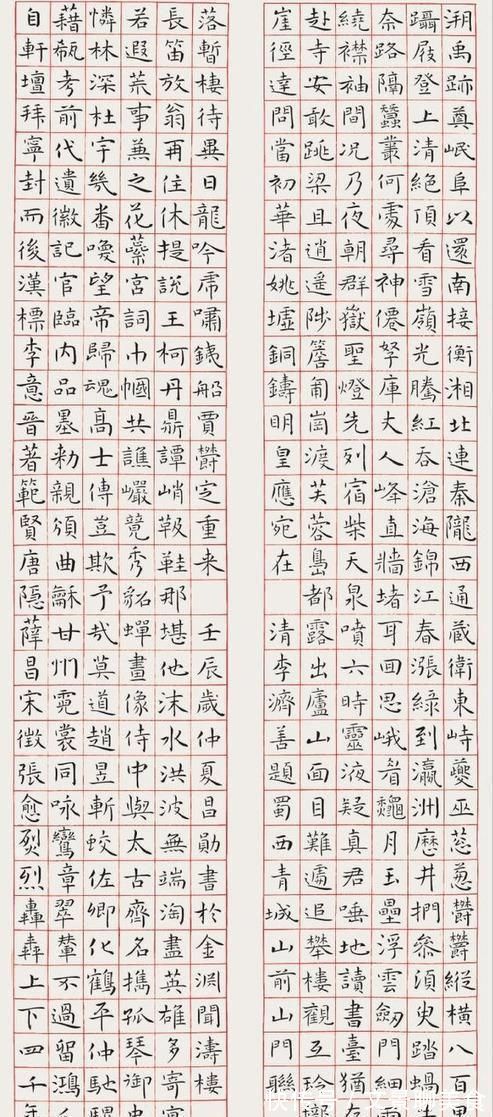 溯禹跡奠岷阜以還南接衡湘北連秦隴西通藏衛東峙夔巫蔥蔥鬱鬱縱橫八百
躡屐登上清絕頂看雪嶺光騰紅吞滄海錦江春漲綠到瀛洲歷井捫參須臾踏蝸
奈路隔蠶叢何處尋神僊孥庫丈人峰直牆堵耳回思峨眉龝月玉壘浮雲劍門細
繞襟袖間況乃夜朝群嶽聖燈先列宿柴天泉噴六時靈液疑真君唾地讀書臺猶
赴寺安敢跳梁且逍遙陟簷蔔崗渡芙蓉島都露出廬山面目難遽追攀樓觀互玲
崖徑達問當初華渚姚墟銅鑄明皇應宛在 清李濟善題蜀西青城山前山門聯
落暫棲待異日龍吟虎嘯鐵船賈鬱定重來 壬辰歲仲夏昌勛書於金淵聞濤樓
長笛放翁再住休提說王柯丹鼎譚峭靸鞋那堪他沫水洪波無端淘盡英雄多寄
若遐荒事兼之花蕊宮詞巾幗共譙巖競秀貂蟬畫像侍中與太古齊名攜孤琴御
憐林深杜宇幾番喚望帝歸魂高士傳豈欺予哉莫道趙昱斬蛟佐卿化鶴平仲馳
藉瓻考前代遺徽記官臨內品墨敕親頒曲龢甘州霓裳同詠鸞章翠輦不過留鴻
自軒壇拜寧封而後漢標李意晉著範賢唐隱薛昌宋徵張愈烈烈轟轟上下四千年